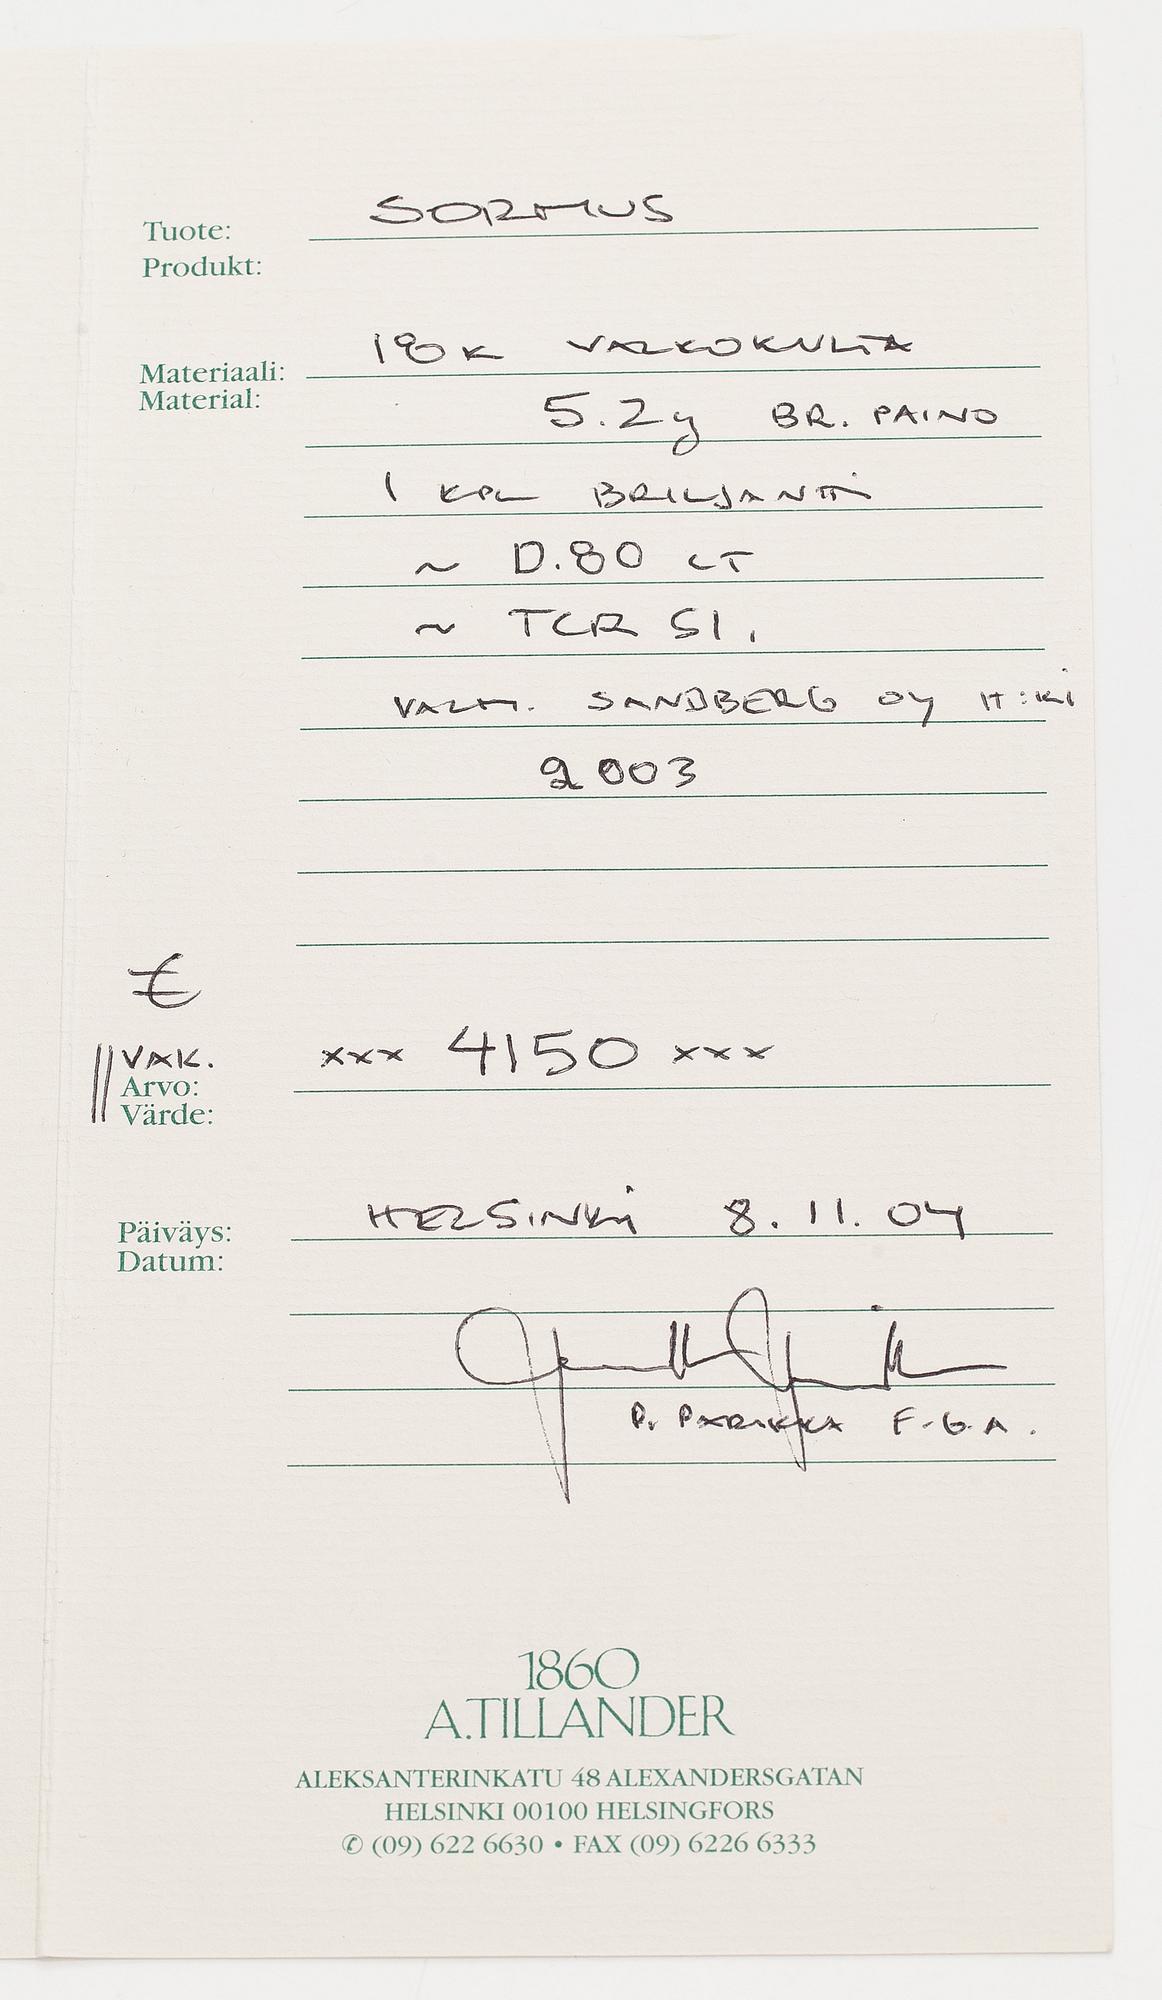 SORMUS
Tuote:
Produkt:
18K VALKOKULTA
Materiaali:
Material:
5.2g BR. PAINO
1 KPL BRILJANTTI
~ 0.80 CT
~ TCR SI,
VALM. SANDBERG OY H:KI
2003
€
VAK. xxx 4150 xxx
Arvo:
Värde:
HELSINKI 8.11.04
Päiväys:
Datum:
P. PARIKKA F.G.A.
1860
A.TILLANDER
ALEKSANTERINKATU 48 ALEXANDERSGATAN
HELSINKI 00100 HELSINGFORS
✆ (09) 622 6630 • FAX (09) 6226 6333